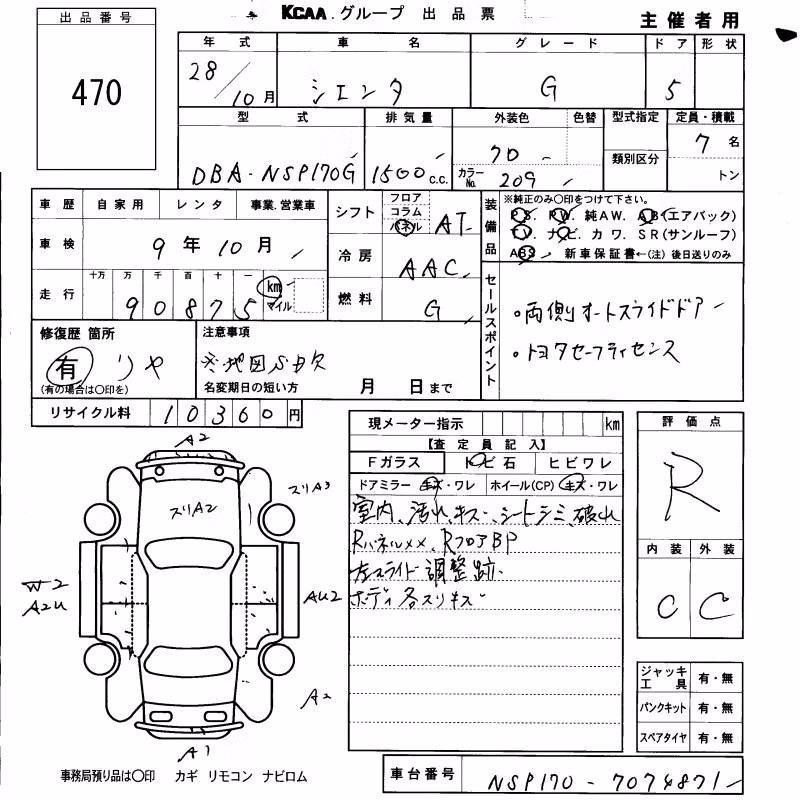 出品番号
470
KCAA.グループ 出品票
主催者用
年式 車名 グレード ドア 形状
28/10月 シエンタ G 5
型式 排気量 外装色 色替 型式指定 定員・積載
類別区分
DBA-NSP170G 1500c.c. クロ カラーNo. 209 7名
トン
車歴 自家用 レンタ 事業.営業車
車検 9年10月
走行 十万 万 千 百 十 一 km マイル
90875
シフト フロア コラム パネル AT
冷房 AAC
燃料 G
装備品
※純正のみ○印をつけて下さい。
P.S. P.W. 純AW. AB(エアバック)
T.V. ナビ カワ. SR(サンルーフ)
ABS. 新車保証書←(注)後日送りのみ
セールスポイント
・両側オートスライドドアー
・トヨタセーフティセンス
修復歴 箇所
有 リヤ
(有の場合は○印を)
注意事項
※地図SD欠
名変期日の短い方 月 日まで
リサイクル料 10360円
現メーター指示 km
【査定員記入】
Fガラス トビ石 ヒビワレ
ドアミラー キズ・ワレ ホイール(CP) キズ・ワレ
室内、汚れ、キズ、シートシミ、破れ
Rパネルメメ、RフロアBP
左スライド調整跡.
ボディ各スリキズ
評価点
R
内装 外装
C C
A2
スリA3
スリA2
W2
A2U
AU2
A2
A1
ジャッキ工具 有・無
パンクキット 有・無
スペアタイヤ 有・無
事務局預り品は○印 カギ リモコン ナビロム
車台番号 NSP170-7074871